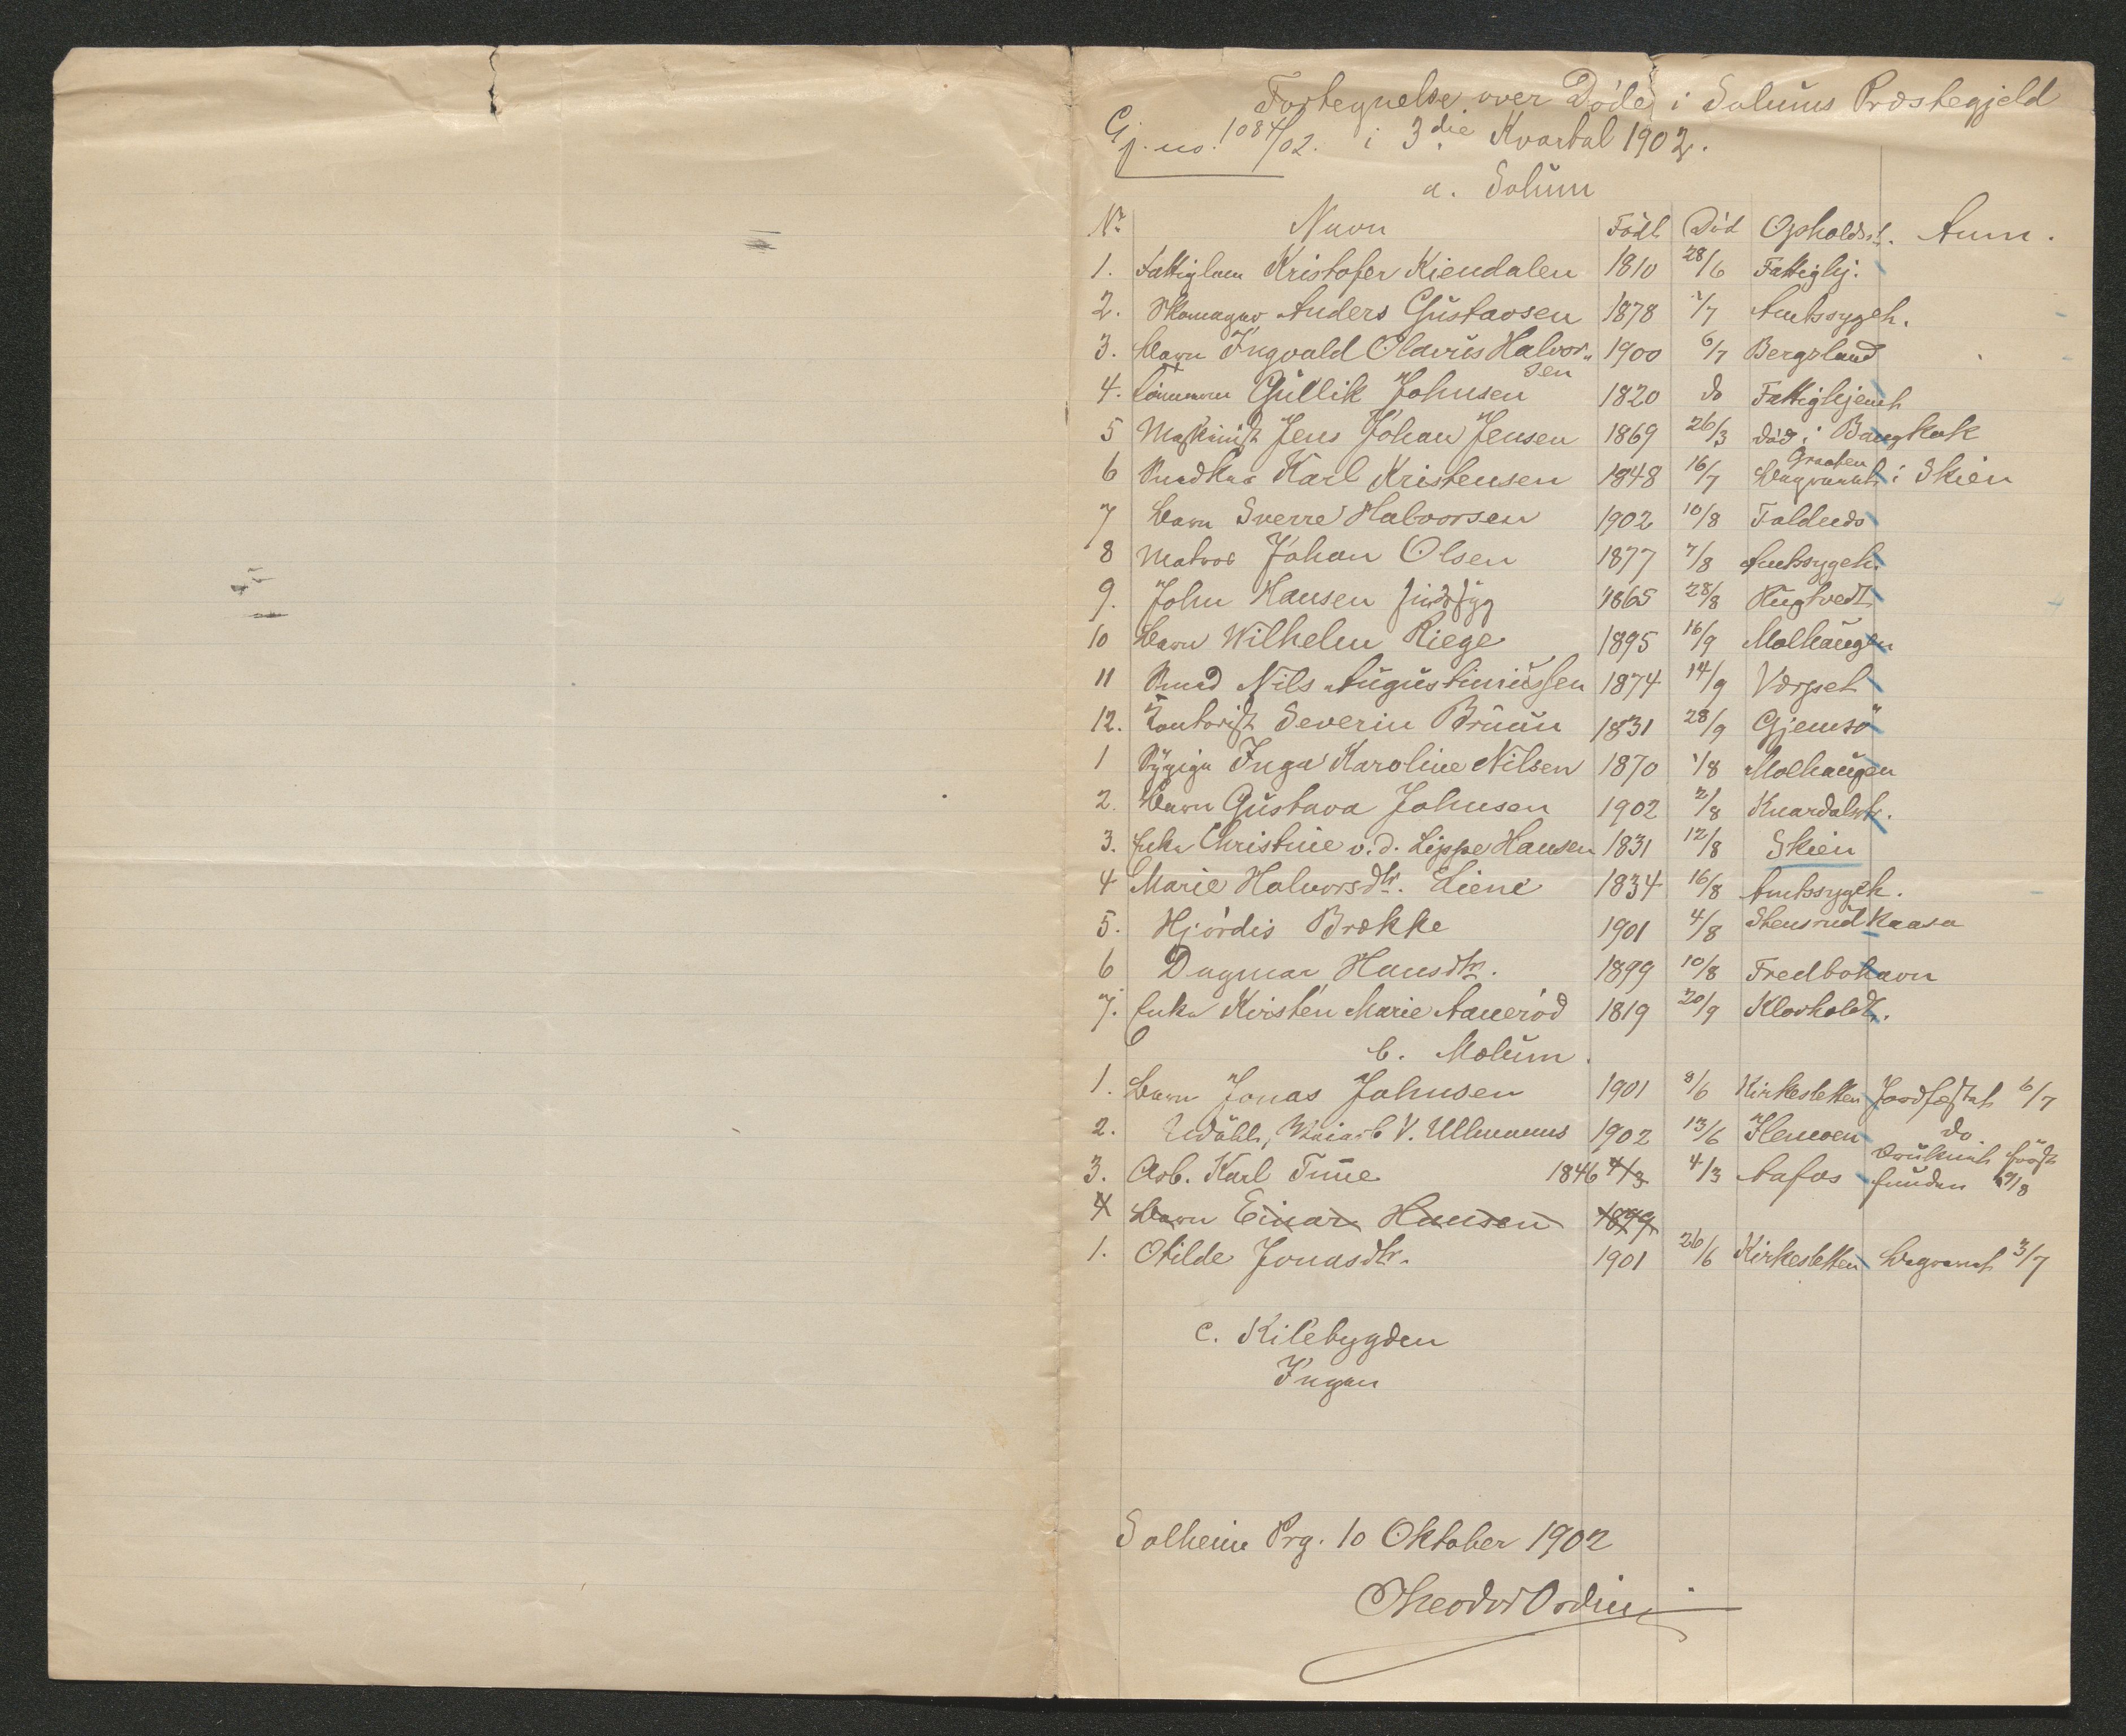 Fortegnelse over Døde i Solums Præstegjeld
Gj. no. 1084/02. i 3die Kvartal 1902.
a. Solum
No Navn Født Død Opholdsst. Anm.
1. Fattiglem Kristofer Kiendalen 1810 28/6 Fattighj.
2. Skomager Anders Gustavsen 1878 1/7 Amtssygeh.
3. Barn Ingvald Olavus Halvorsen 1900 6/7 Bergsland
4. Tømmerm Gullik Johnsen 1820 do Fattighjemt
5 Maskinist Jens Johan Jensen 1869 26/3 død i Bangkok
6 Karl Kristensen 1848 16/7 Graaten Begravet i Skien
7 Barn Sverre Halvorsen 1902 10/8 Foldnes
8 Matros Johan Olsen 1877 7/8 Amtssygeh.
9. John Hansen sindssyg 1865 28/8 Rugtvedt
10 Barn Wilhelm Riege 1895 16/9 Molhaugen
11 Nils Augustinussen 1874 14/9 Værpet
12. Kontorist Severin Bruun 1831 28/9 Gjemsø
1 Sypige Inga Karoline Nilsen 1870 1/8 Molhaugen
2. Barn Gustava Johnsen 1902 2/8 Knardalstr.
3. Enke Christine v. d. Lippe Hansen 1831 12/8 Skien
4 Marie Halvorsdtr. Liene 1834 16/8 Amtssygeh.
5. Hjørdis Brække 1901 4/8 Stensrudkaasa
6 Dagmar Hansdtr. 1899 10/8 Fredbohavn
7. Enke Kirsten Marie Aanerød 1819 20/9 Klovholdt.
b. Mælum.
1. Barn Jonas Johnsen 1901 8/6 Kirkesletten Jordfæstet 6/7
2. Udøbt, V. Ullmanns 1902 13/6 Hemoen do
3. Arb. Karl Tune 1846 4/3 4/3 Aafos Druknet først funden 9/8
4 Barn Einar Hansen 1899
1. Otilde Jonasdtr. 1901 26/6 Kirkesletten Begravet 3/7
c. Kilebygden
Ingen
Solheim Prg. 10 Oktober 1902
Theodor Ording